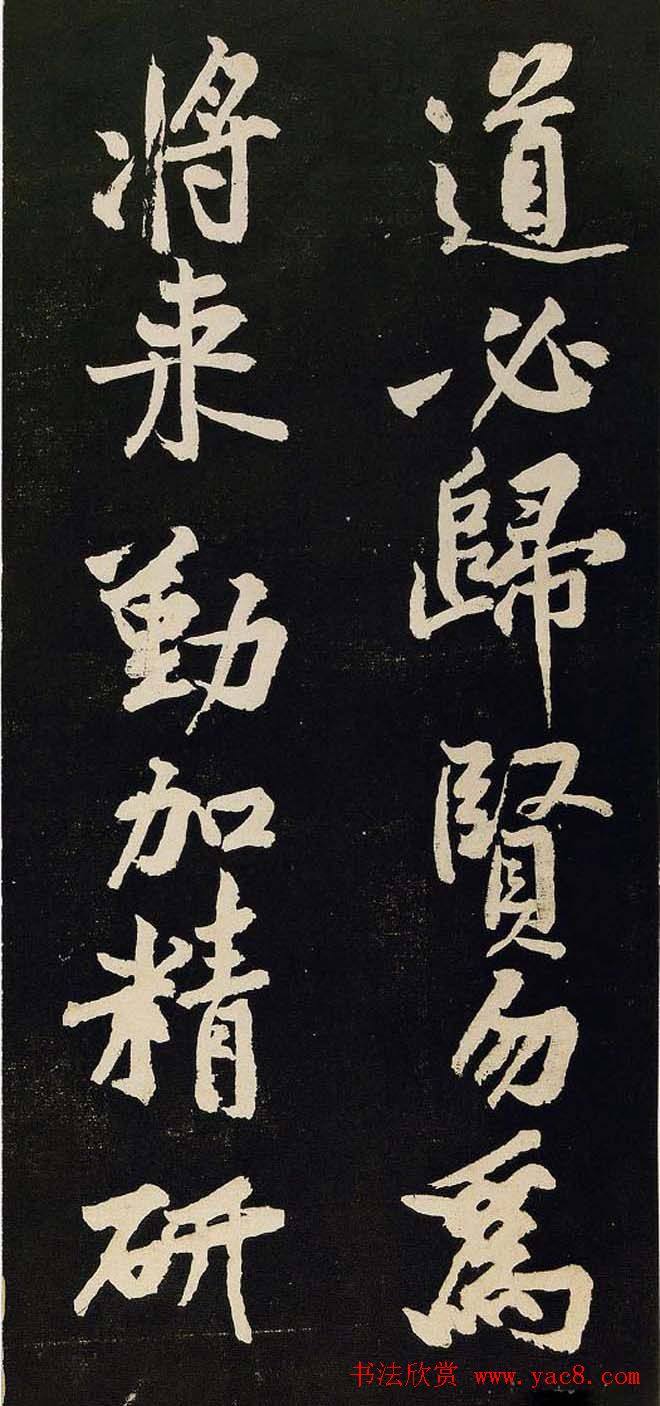 道必歸賢勿爲
将来勤加精研
书法欣赏 www.yac8.com